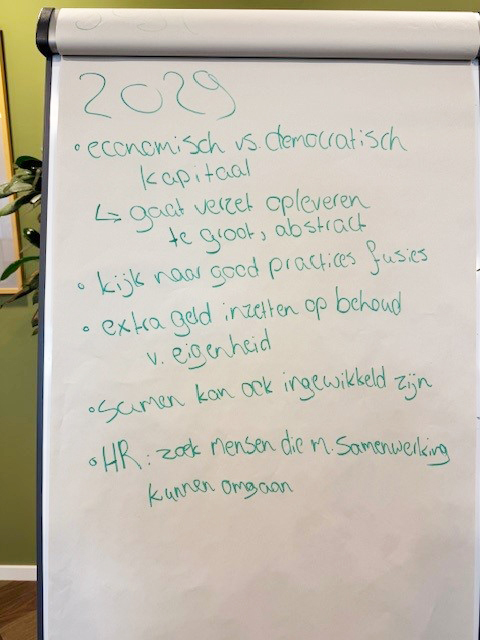 2029
• economisch vs. democratisch
kapitaal
↳ gaat verzet opleveren
te groot, abstract
• kijk naar good practices fusies
• extra geld inzetten op behoud
v. eigenheid
• samen kan ook ingewikkeld zijn
• HR: zoek mensen die m. samenwerking
kunnen omgaan